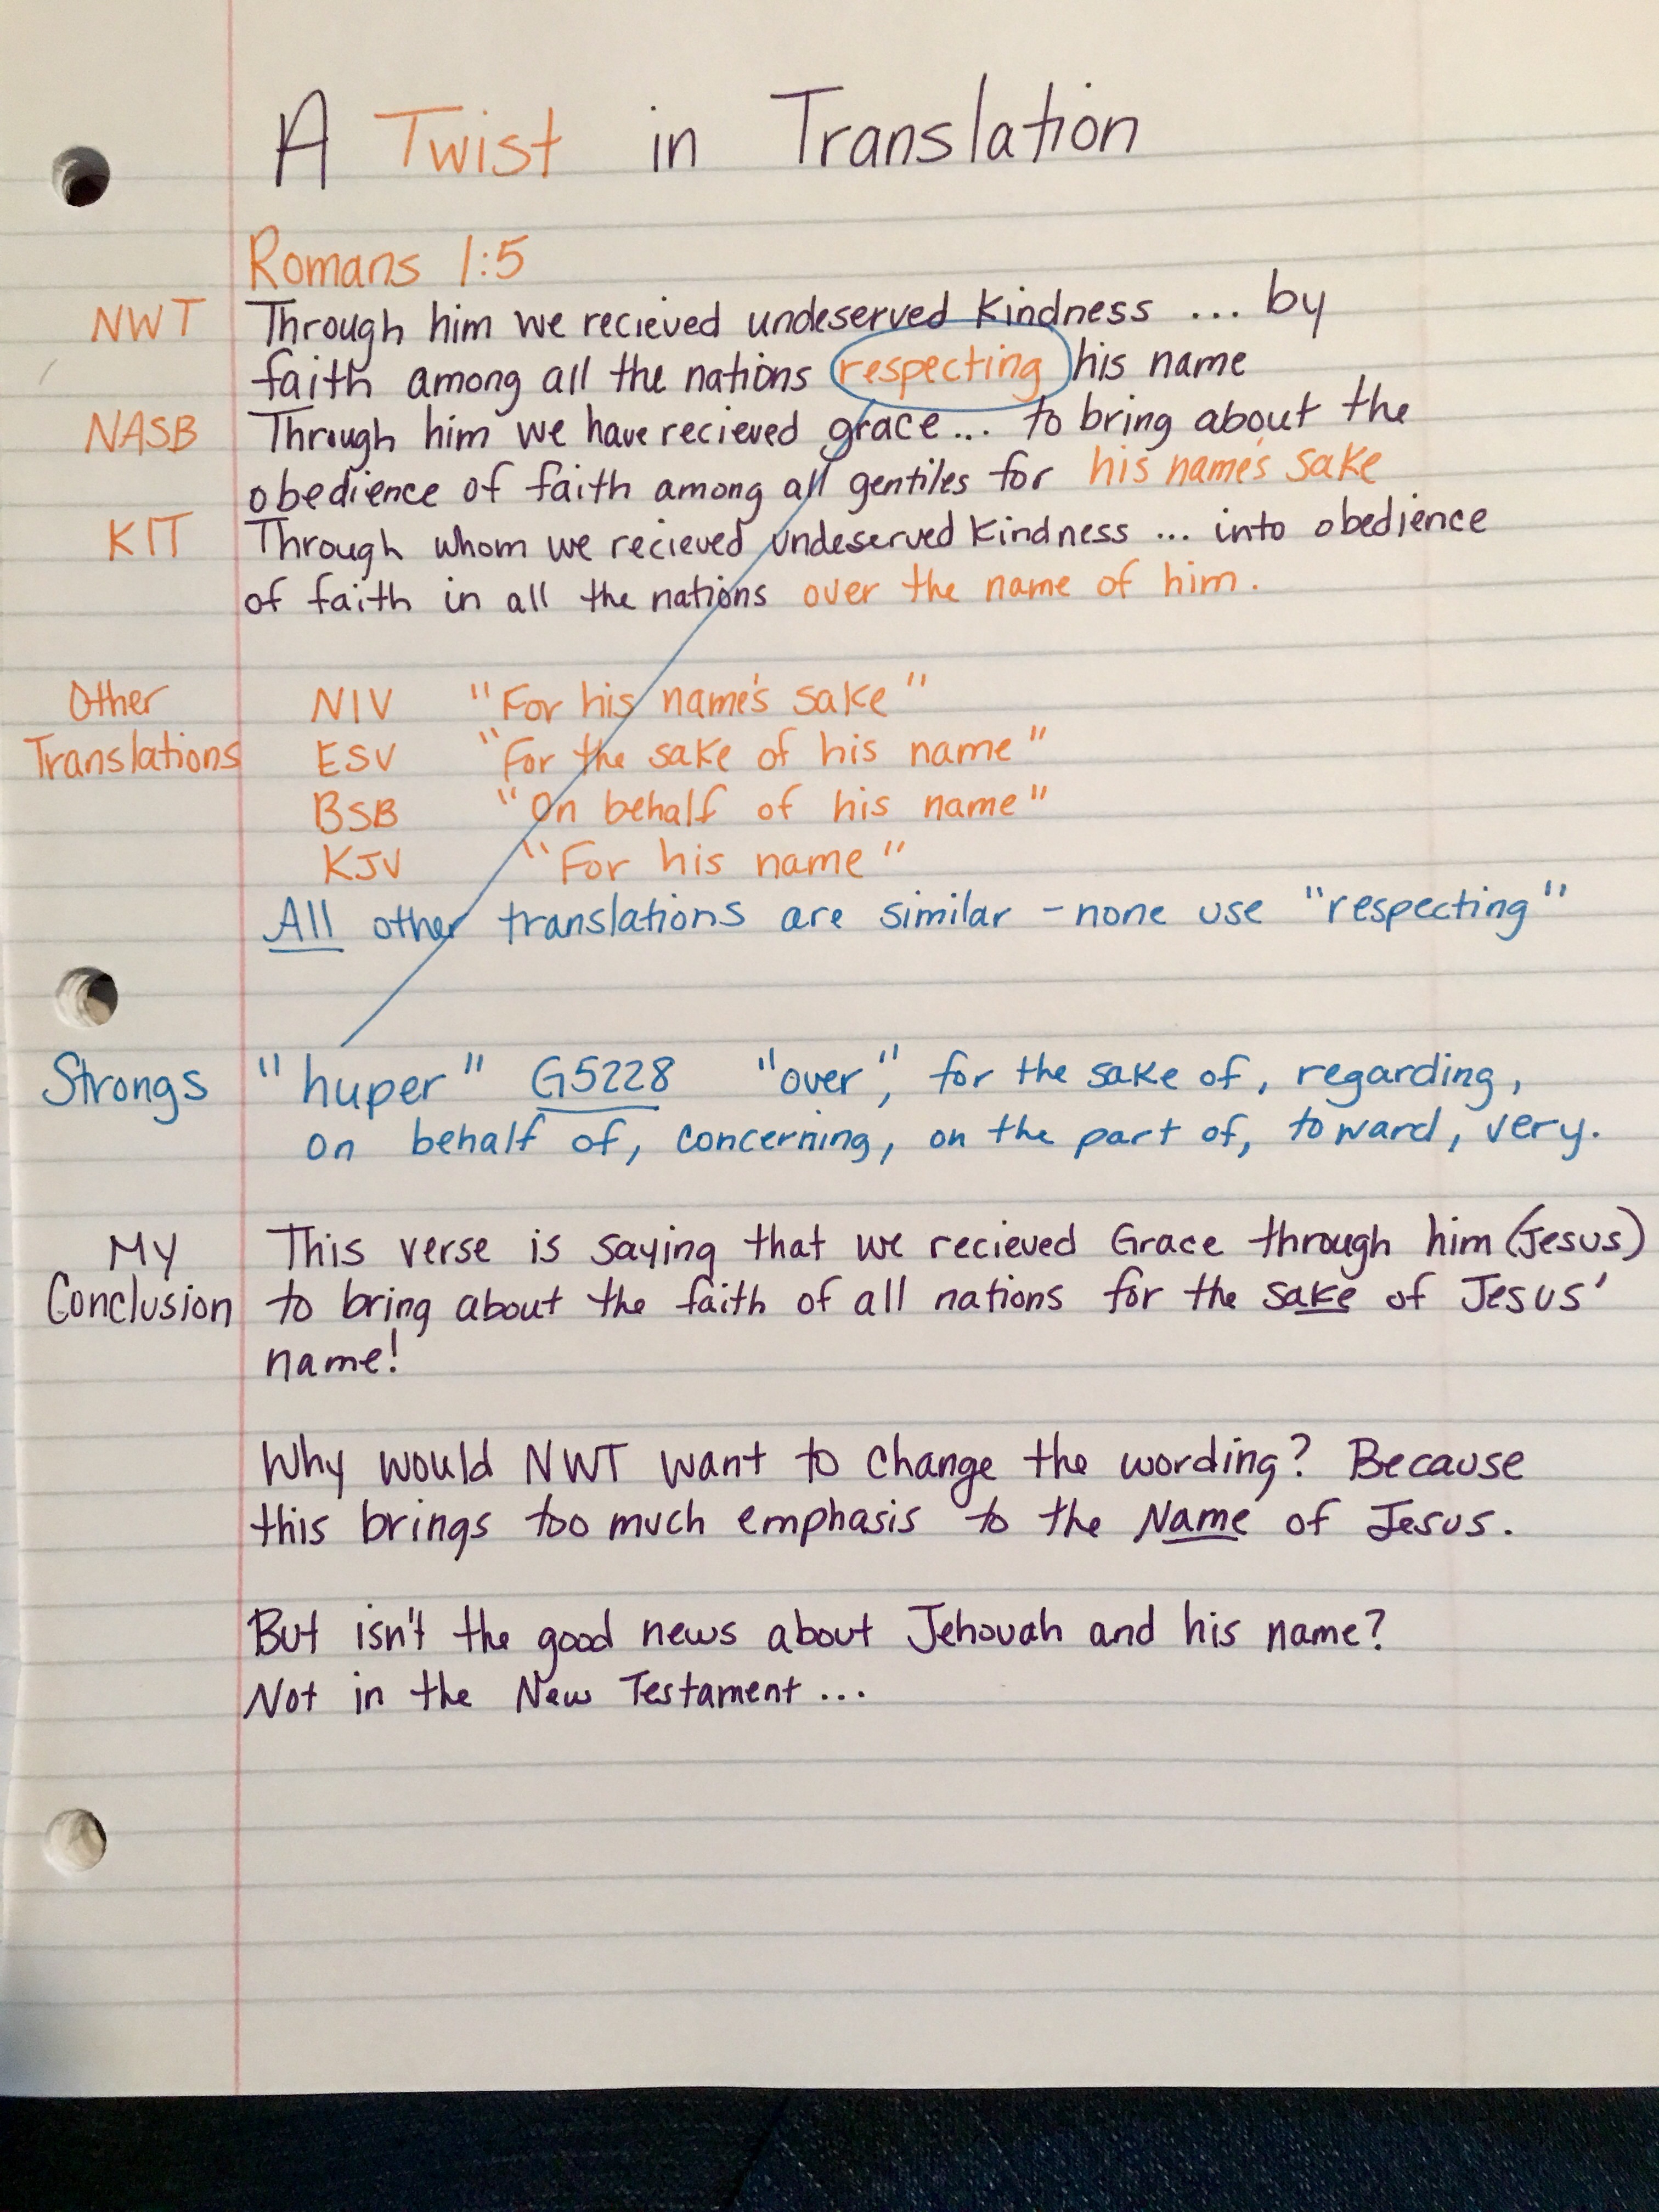 A Twist in Translation
Romans 1:5
NWT Through him we recieved undeserved kindness ... by
faith among all the nations respecting his name
NASB Through him we have recieved grace... to bring about the
obedience of faith among all gentiles for his name's sake
KIT Through whom we recieved undeserved kindness ... into obedience
of faith in all the nations over the name of him.
Other NIV "For his name's sake"
Translations ESV "For the sake of his name"
BSB "On behalf of his name"
KJV "For his name"
All other translations are similar - none use "respecting"
Strongs "huper" G5228 "over", for the sake of, regarding,
on behalf of, concerning, on the part of, toward, very.
My This verse is saying that we recieved Grace through him (Jesus)
Conclusion to bring about the faith of all nations for the sake of Jesus'
name!
Why would NWT want to change the wording? Because
this brings too much emphasis to the Name of Jesus.
But isn't the good news about Jehovah and his name?
Not in the New Testament...